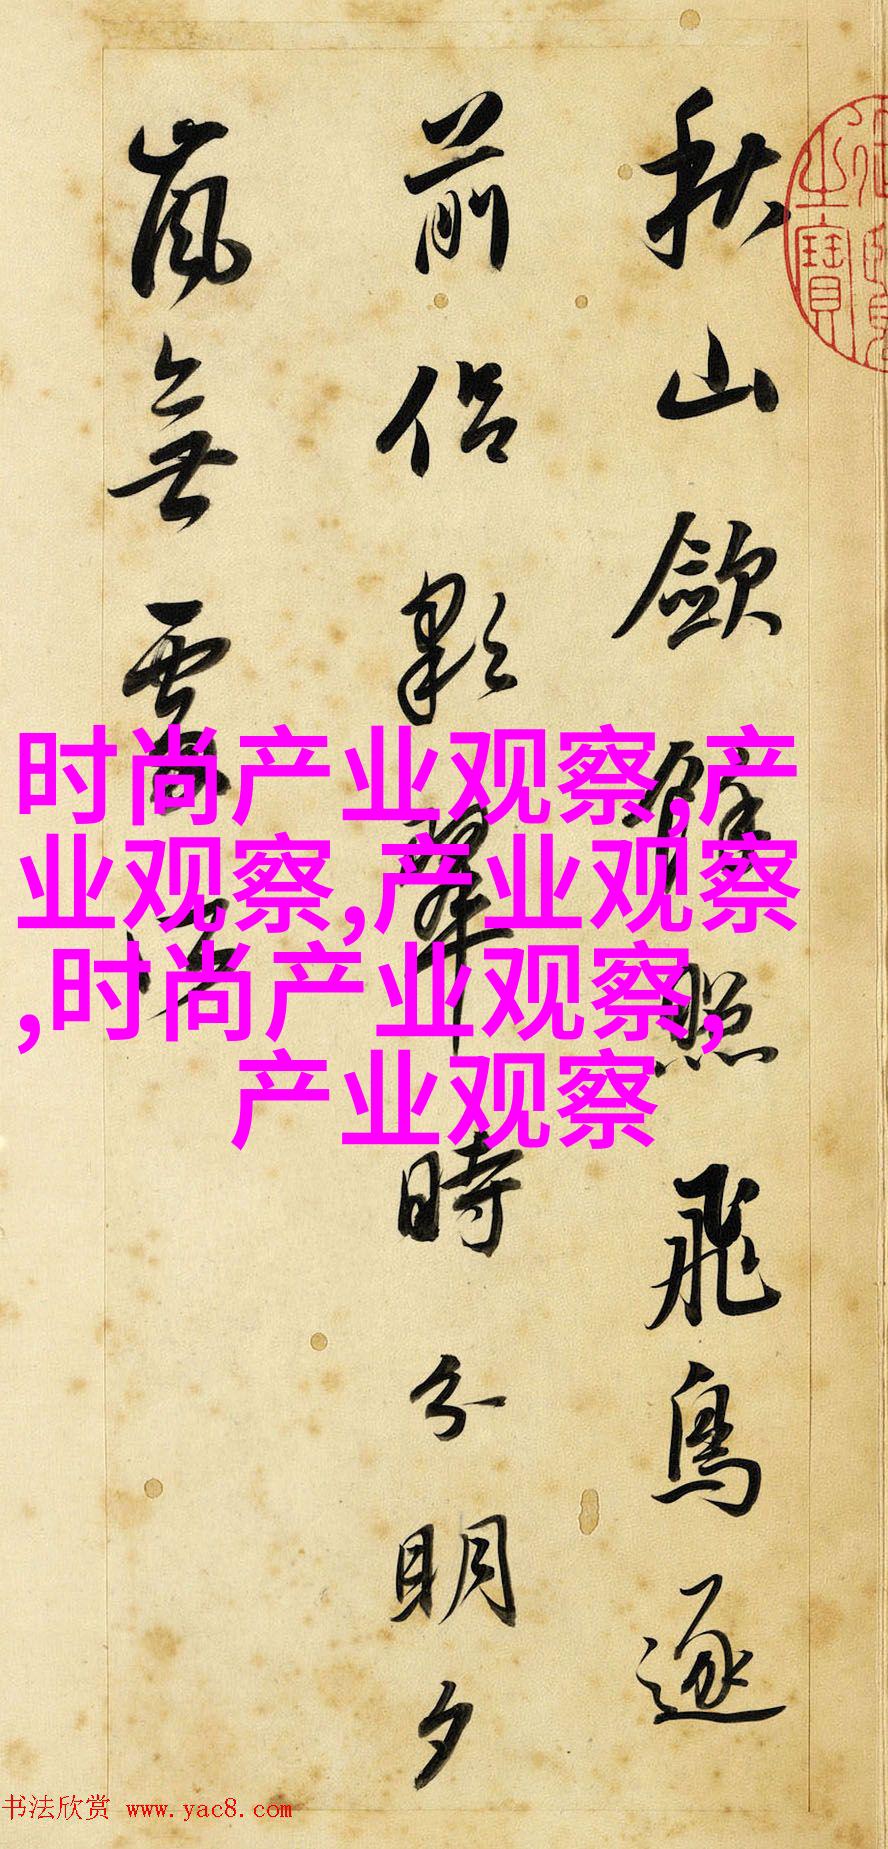 秋山歛餘照飛鳥逐
前侶彩翠時分明夕
嵐無處
之寶
时尚产业观察,产
业观察,产业观察
,时尚产业观察,
产业观察
书法欣赏 www.yac8.com